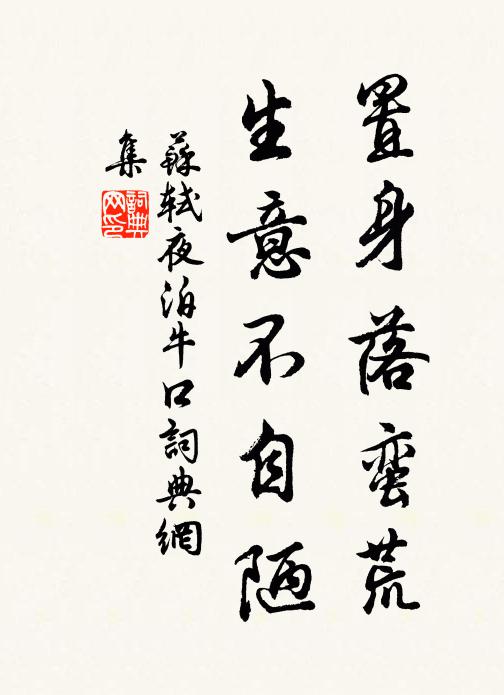 置身落蛮荒
生意不自陋
蘇軾夜泊牛口詞典網
集
詞典网印